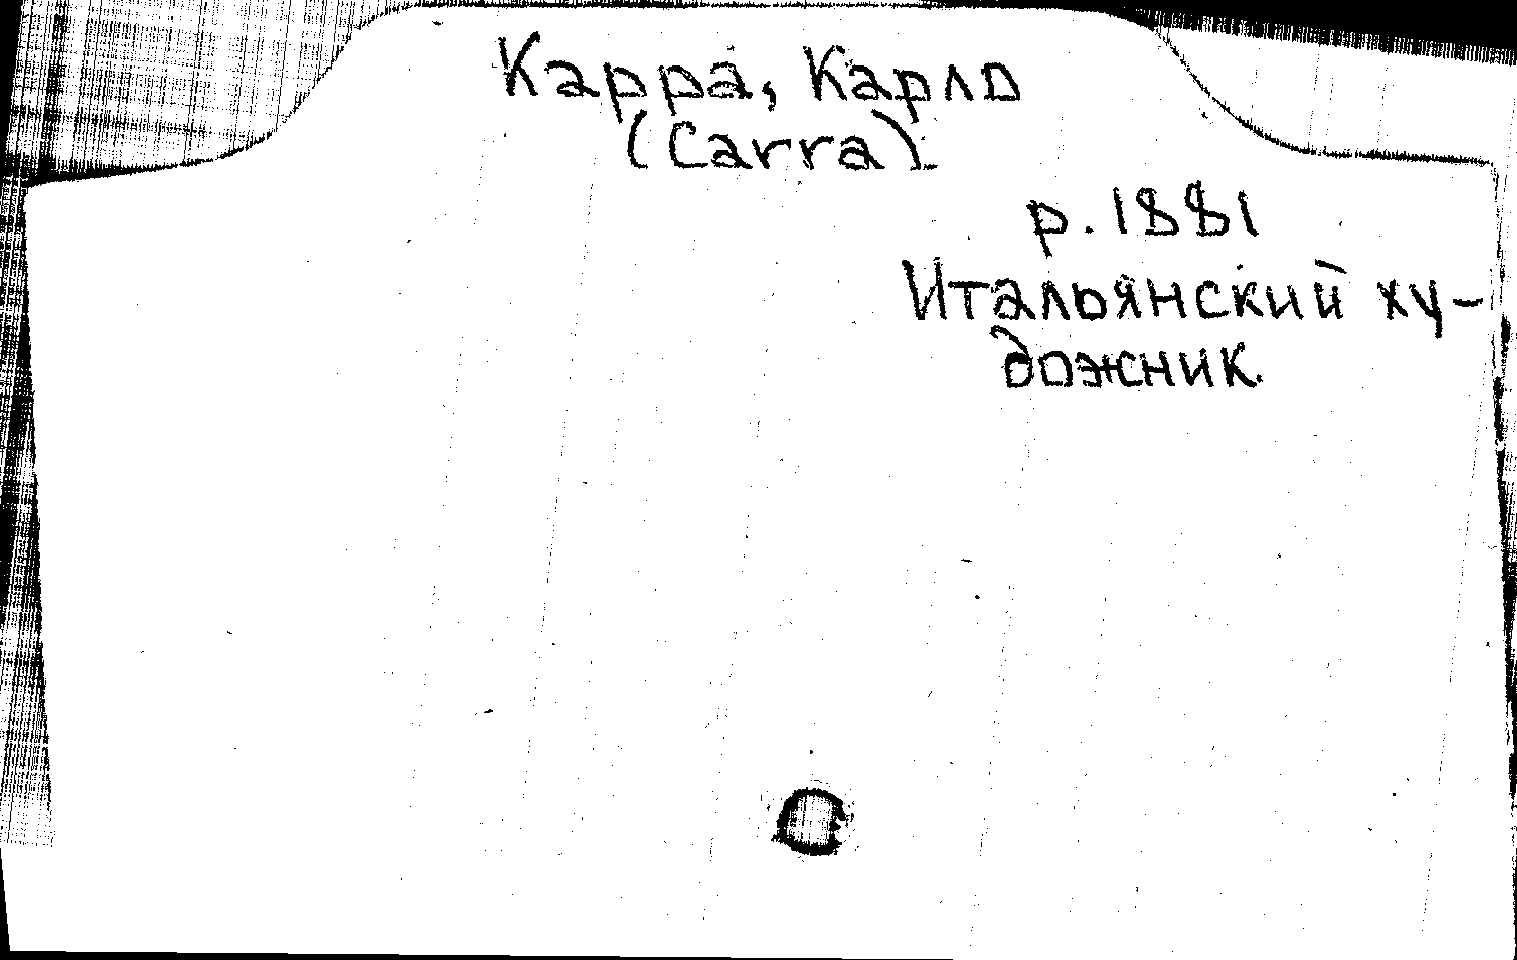 Карра, Карло
(Carra).
р. 1881
Итальянский ху-
дожник.